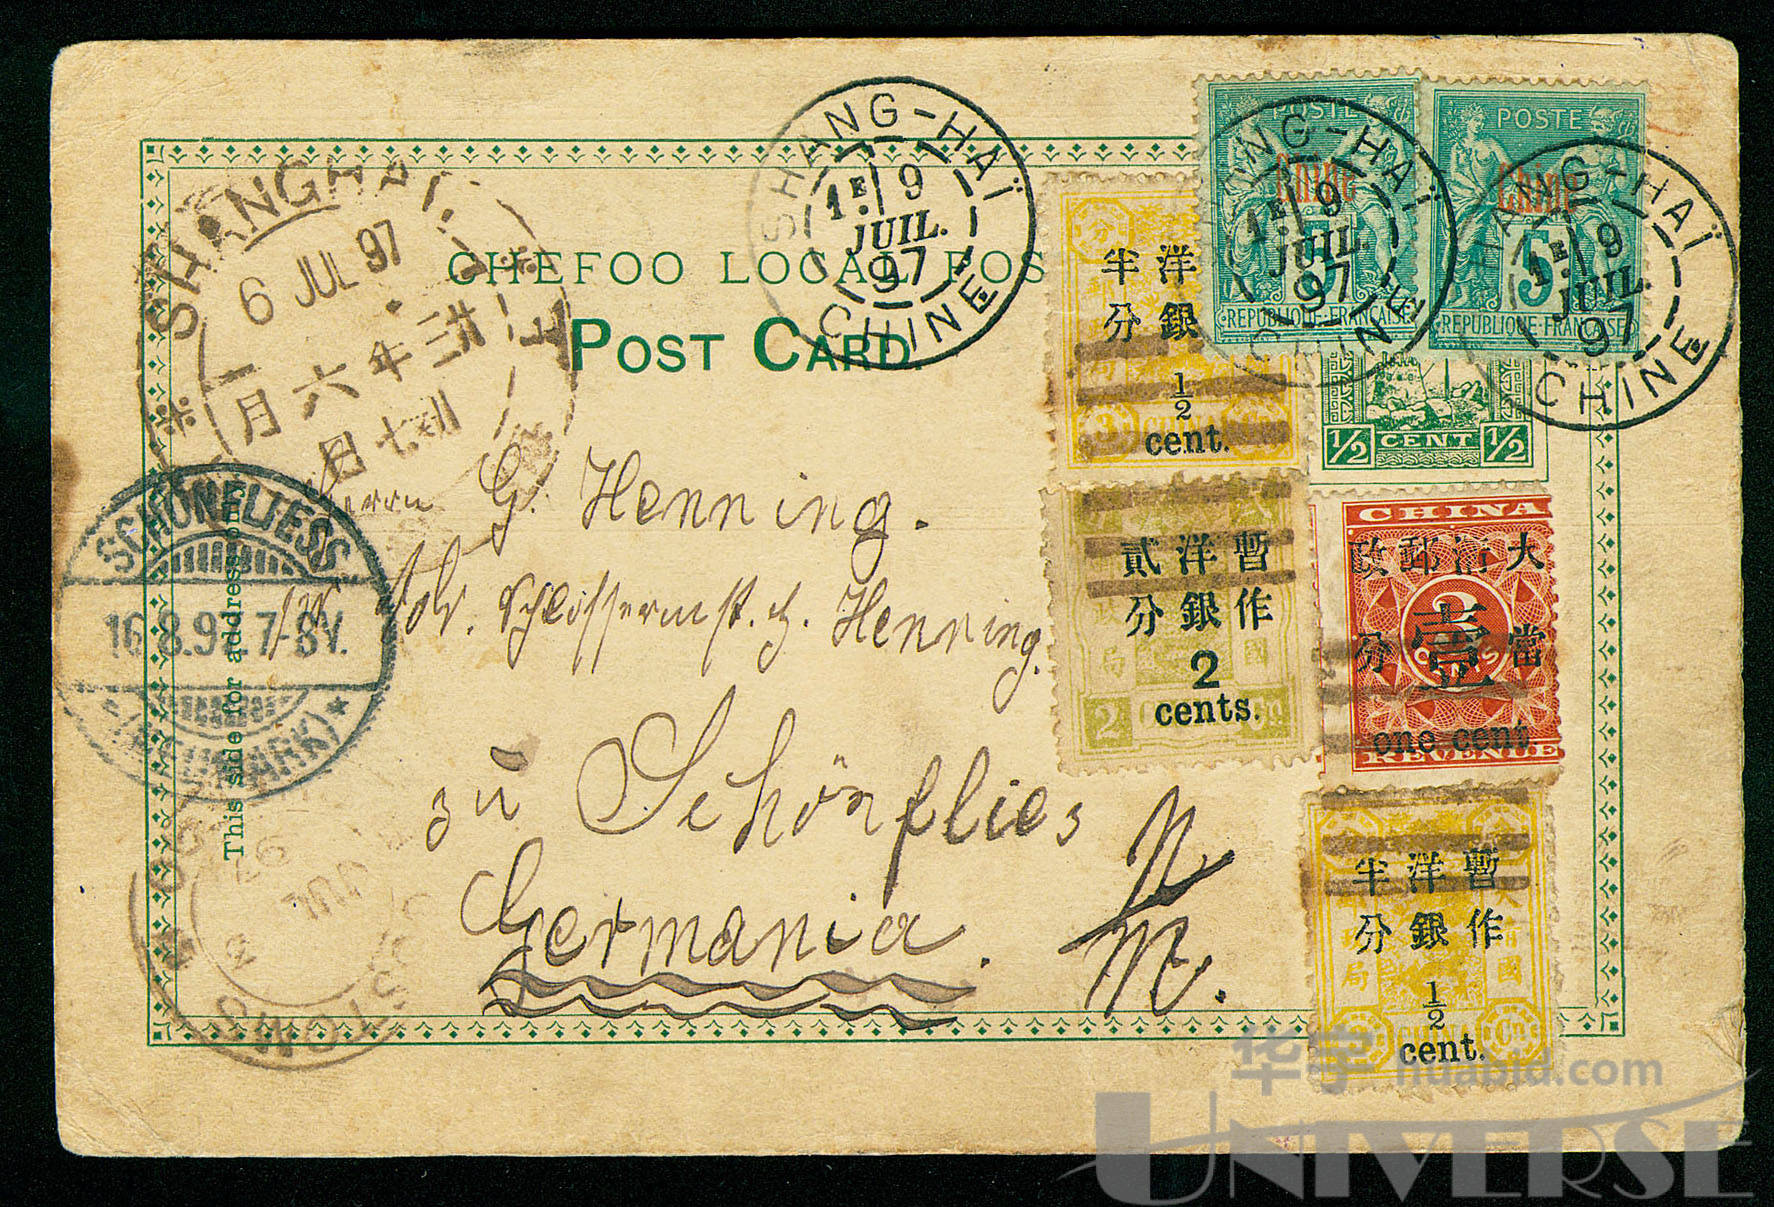 CHEFOO LOCAL POS
POST CARD.
This side for address only
SHANG-HAÏ
1E 9
JUIL.
97
CHINE
SHANGHAI
6 JUL 97
卅三年六月
初七日
SCHÖNFLIESS
16.8.97.7-8V.
(NEUMARK)
CUSTOMS
JUL
POSTE
Chine
5
REPUBLIQUE FRANÇAISE
POSTE
Chine
5
REPUBLIQUE FRANÇAISE
SHANG-HAÏ
1E 9
JUIL.
97
CHINE
SHANG-HAÏ
1E 9
JUIL.
97
CHINE
洋銀半分
1/2
cent.
3
1/2 CENT 1/2
暫作洋銀貳分
2
cents.
2
CHINA
大清郵政
當壹分
3
one cent
REVENUE
暫作洋銀半分
1/2
cent.
Herrn G. Henning.
Adr. Schlossermst. h. Henning.
zu Schönflies
Germania. N/M.
华宇 huabid.com
UNIVERSE